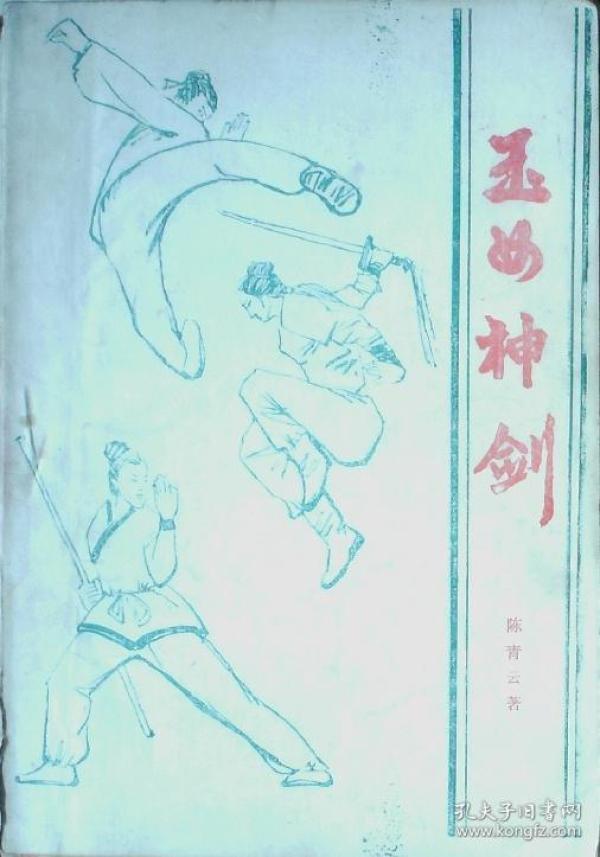 玉女神剑
陈青云著
孔夫子旧书网
www.kongfz.com